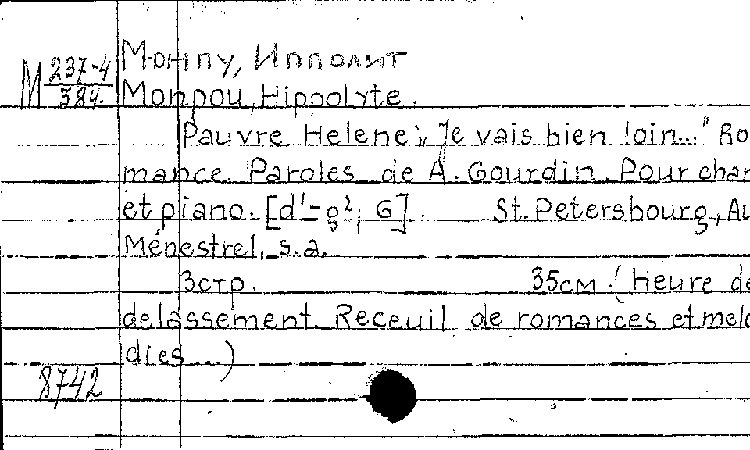 М 237-4/389 Монпу, Ипполит
Monpou, Hippolyte.
Pauvre Helene: „Je vais bien loin..." Ro
mance. Paroles de A. Gourdin. Pour chan
et piano. [d'-g², G]. St. Petersbourg, Au
Ménestrel, s.a.
3стр. 35см. (heure de
delassement. Receuil de romances et melo
dies...)
8742